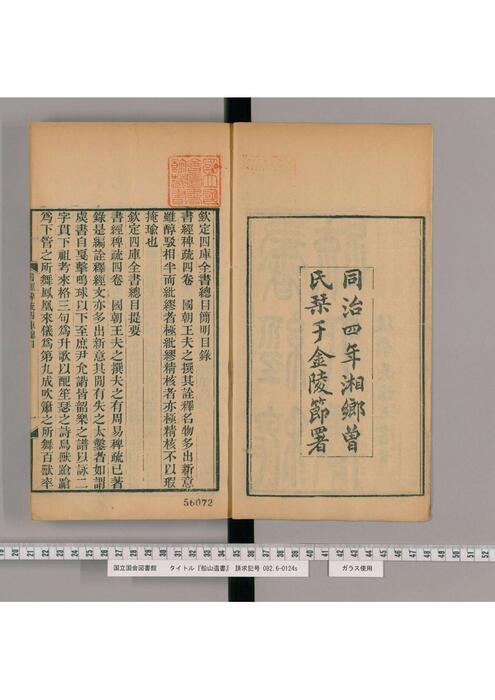 同治四年湘鄉曾
氏栞于金陵節署
欽定四庫全書總目簡明目錄
書經稗疏四卷 國朝王夫之撰其詮釋名物多出新意
雖醇駁相半而紕繆者極紕繆精核者亦極精核不以瑕
掩瑜也
欽定四庫全書總目提要
書經稗疏四卷 國朝王夫之撰夫之有周易稗疏已著
錄是編詮釋經文亦多出新意其間有失之太鑿者如謂
虞書自戛擊鳴球以下至庶尹允諧皆韶樂之譜以詠二
字貫下祖考來格三句為升歌以配笙瑟之詩鳥獸蹌蹌
為下管之所舞鳳凰來儀為第九成吹簫之所舞百獸率
56072
19 20 21 22 23 24 25 26 27 28 29 30 31 32 33 34 35 36 37 38 39 40 41 42 43 44 45 46 47 48 49 50 51 52
国立国会図書館 タイトル『船山遺書』 請求記号 082.6-0124s ガラス使用